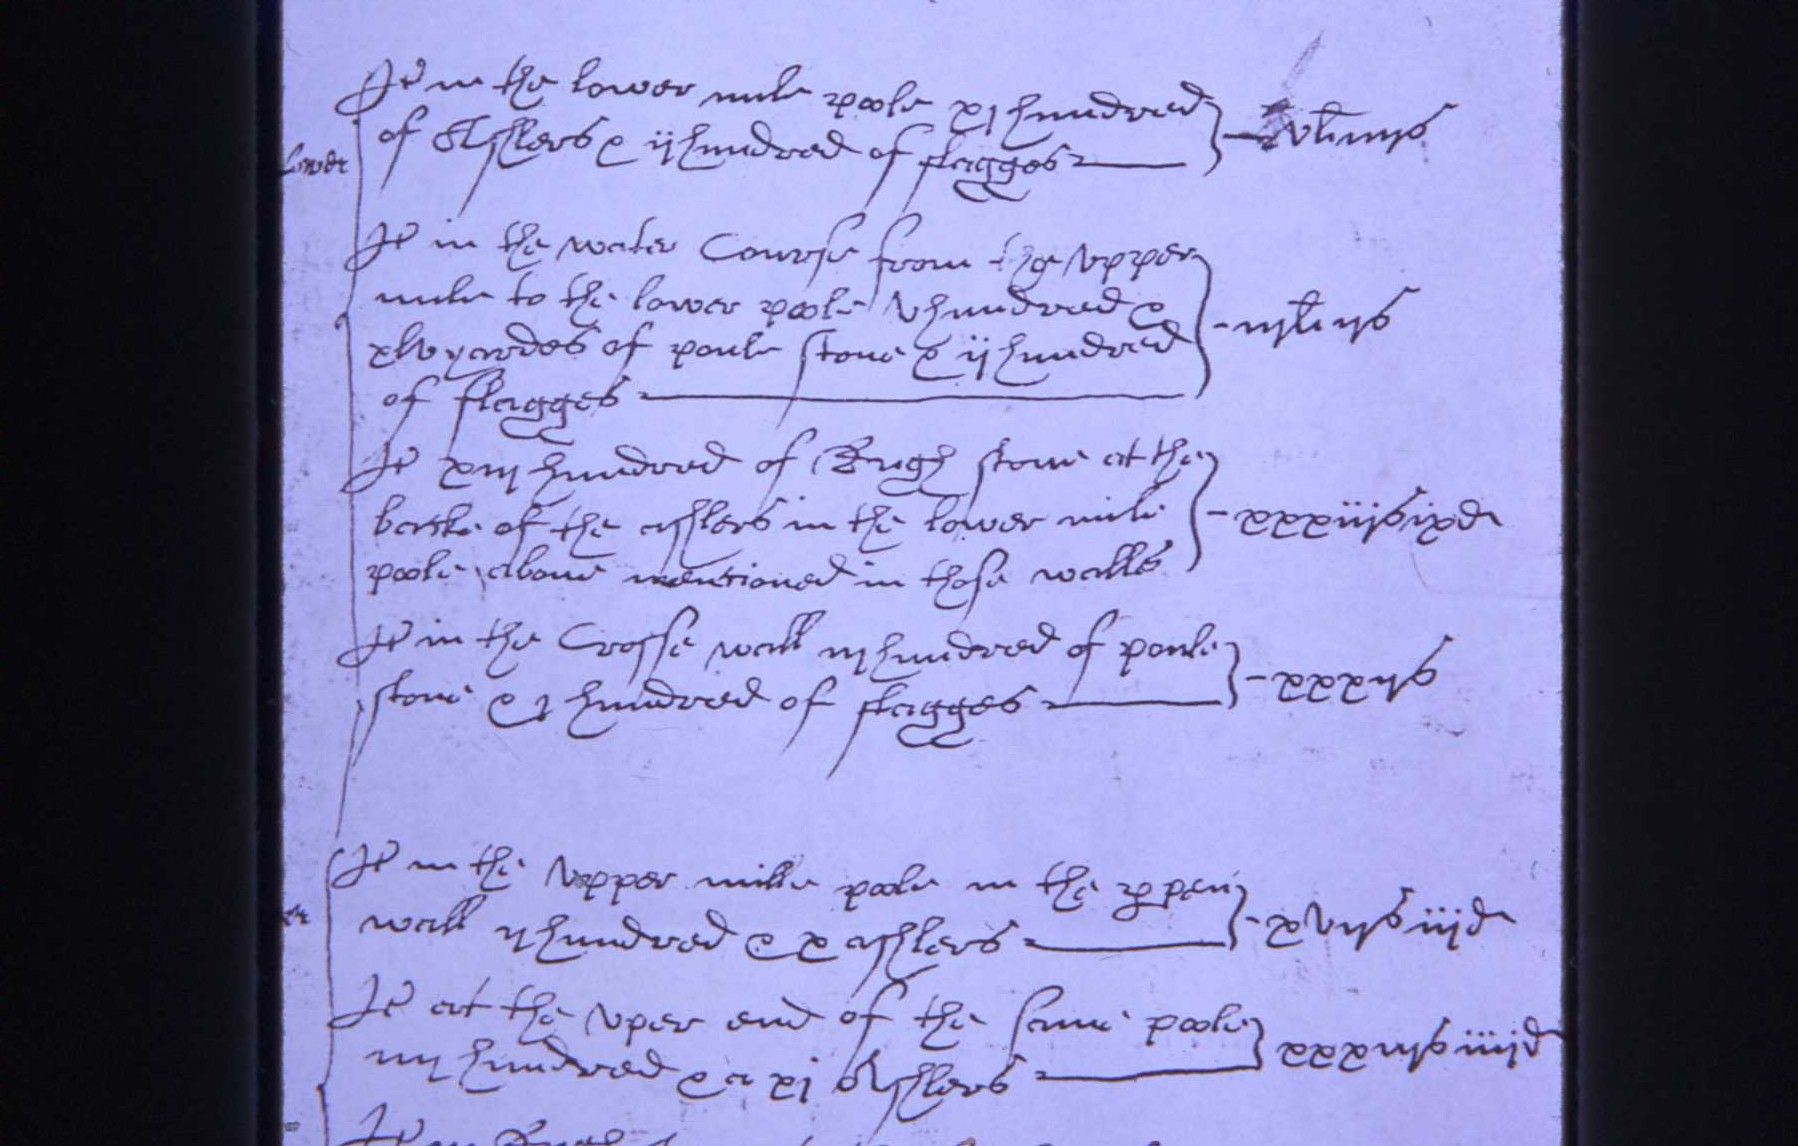 It in the lower mile poole xj hundred
of Asslers & ij hundred of flagges vli iiijs
Lower
It in the water Course from the vpper
mile to the lower poole v hundred &
xlv yardes of poule stone & ij hundred
of flagges iijli ijs
It xiij hundred of Rugh stone at the
backe of the asshlers in the lower mile
poole aboue mentioned in those walls xxxiijs ixd
It in the Crosse wall iij hundred of poule
stone & j hundred of flagges xxxijs
It in the vpper mille poole in the
wall ij hundred & x asshlers xvijs iijd
It at the vper end of the same poole
iiij hundred & a xj Asshlers iiijd
It